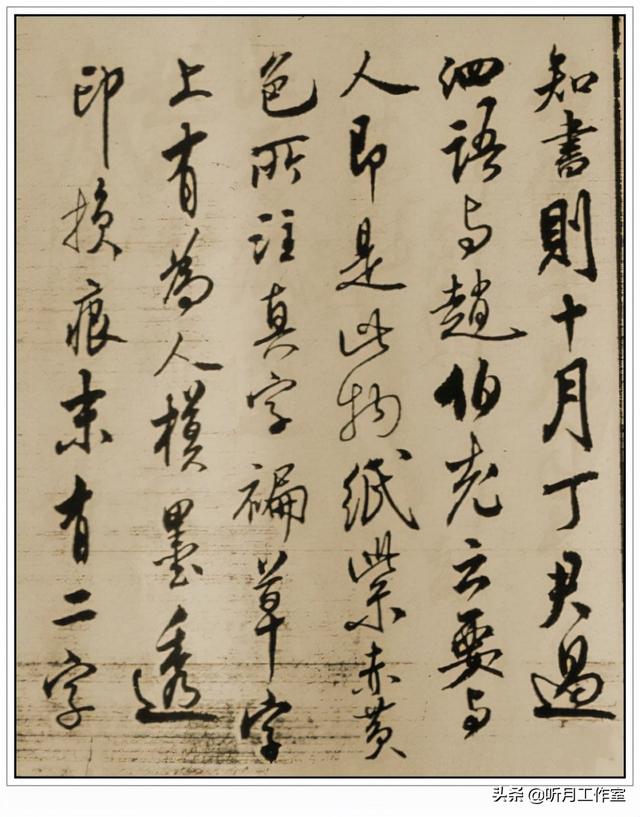 知書則十月丁君過
泗語与趙伯充云要与
人即是此物紙紫赤黄
色所注真字褊草字
上有為人模墨透
印損痕末有二字
头条 @听月工作室